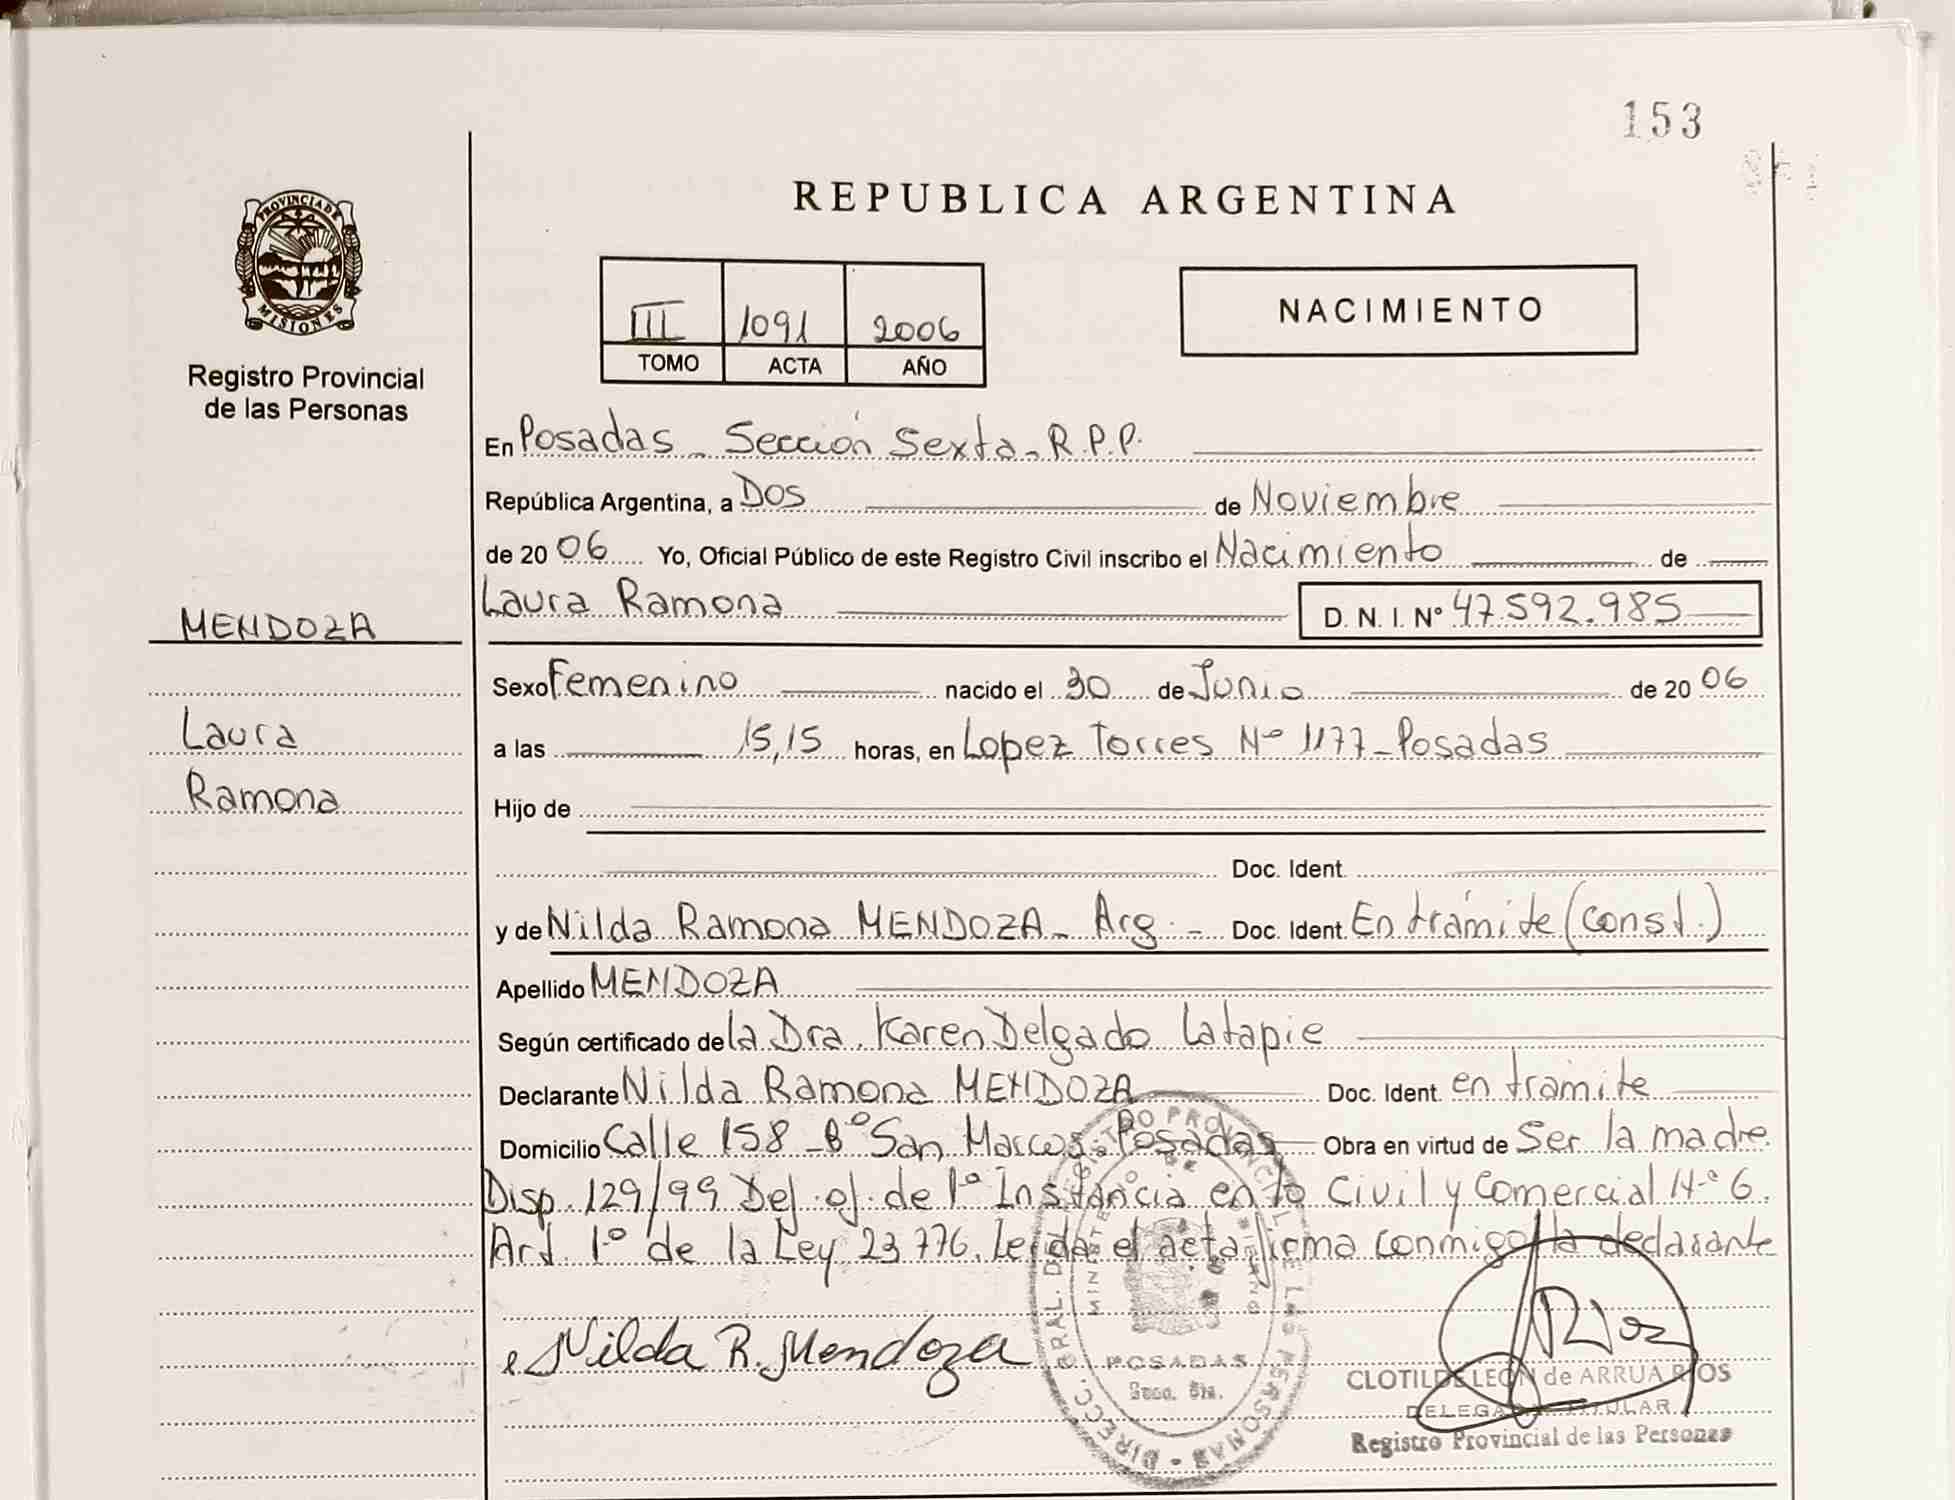 153
PROVINCIA DE
MISIONES
Registro Provincial
de las Personas
REPUBLICA ARGENTINA
III 1091 2006
TOMO ACTA AÑO
NACIMIENTO
En Posadas - Sección Sexta - R.P.P.
República Argentina, a Dos de Noviembre
de 2006 Yo, Oficial Público de este Registro Civil inscribo el Nacimiento de
Laura Ramona D. N. I. Nº 47.592.985
MENDOZA
Laura
Ramona
Sexo Femenino nacido el 30 de Junio de 2006
a las 15,15 horas, en Lopez Torres Nº 1177 - Posadas
Hijo de
Doc. Ident.
y de Nilda Ramona MENDOZA - Arg. - Doc. Ident. En trámite (const.)
Apellido MENDOZA
Según certificado de la Dra. Karen Delgado Latapie
Declarante Nilda Ramona MENDOZA Doc. Ident. en tramite
Domicilio Calle 158 - Bº San Marcos - Posadas Obra en virtud de Ser la madre.
Disp. 129/99 Def. of. de 1º Instancia en lo Civil y Comercial Nº 6.
Art. 1º de la Ley 23.776. Leida el acta firma conmigo la declarante
Nilda R. Mendoza
DIRECC. GRAL. DE REGISTRO PROVINCIAL DE LAS PERSONAS
MINISTERIO DE GOBIERNO
POSADAS
Secc. 6ta.
CLOTILDE LEON de ARRUA RIOS
DELEGADA TITULAR
Registro Provincial de las Personas